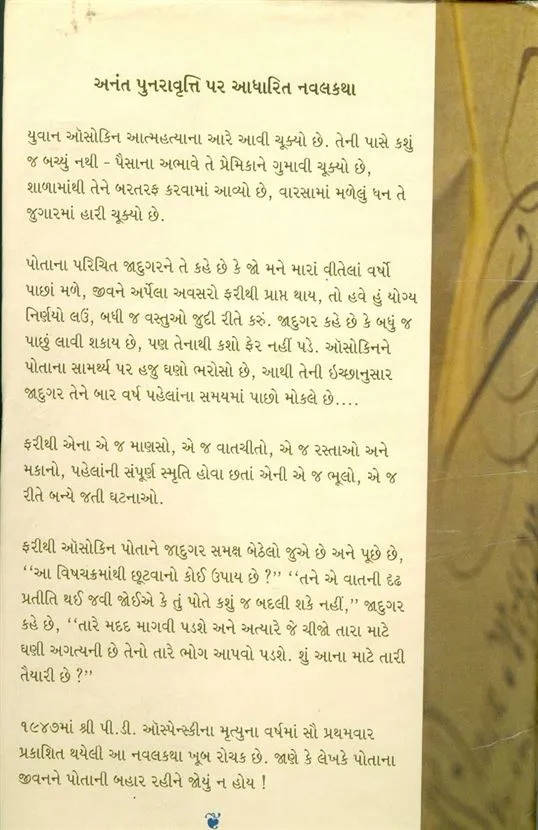 અનંત પુનરાવૃત્તિ પર આધારિત નવલકથા
યુવાન ઑસોકિન આત્મહત્યાના આરે આવી ચૂક્યો છે. તેની પાસે કશું
જ બચ્યું નથી - પૈસાના અભાવે તે પ્રેમિકાને ગુમાવી ચૂક્યો છે,
શાળામાંથી તેને બરતરફ કરવામાં આવ્યો છે, વારસામાં મળેલું ધન તે
જુગારમાં હારી ચૂક્યો છે.
પોતાના પરિચિત જાદુગરને તે કહે છે કે જો મને મારાં વીતેલાં વર્ષો
પાછાં મળે, જીવને અર્પેલા અવસરો ફરીથી પ્રાપ્ત થાય, તો હવે હું યોગ્ય
નિર્ણયો લઉં, બધી જ વસ્તુઓ જુદી રીતે કરું. જાદુગર કહે છે કે બધું જ
પાછું લાવી શકાય છે, પણ તેનાથી કશો ફેર નહીં પડે. ઑસોકિનને
પોતાના સામર્થ્ય પર હજુ ઘણો ભરોસો છે, આથી તેની ઈચ્છાનુસાર
જાદુગર તેને બાર વર્ષ પહેલાંના સમયમાં પાછો મોકલે છે....
ફરીથી એના એ જ માણસો, એ જ વાતચીતો, એ જ રસ્તાઓ અને
મકાનો, પહેલાંની સંપૂર્ણ સ્મૃતિ હોવા છતાં એની એ જ ભૂલો, એ જ
રીતે બન્યે જતી ઘટનાઓ.
ફરીથી ઑસોકિન પોતાને જાદુગર સમક્ષ બેઠેલો જુએ છે અને પૂછે છે,
‘‘આ વિષચક્રમાંથી છૂટવાનો કોઈ ઉપાય છે ?’’ ‘‘તને એ વાતની દૃઢ
પ્રતીતિ થઈ જવી જોઈએ કે તું પોતે કશું જ બદલી શકે નહીં,’’ જાદુગર
કહે છે, ‘‘તારે મદદ માગવી પડશે અને અત્યારે જે ચીજો તારા માટે
ઘણી અગત્યની છે તેનો તારે ભોગ આપવો પડશે. શું આના માટે તારી
તૈયારી છે ?’’
૧૯૪૭માં શ્રી પી.ડી. ઑસ્પેન્સ્કીના મૃત્યુના વર્ષમાં સૌ પ્રથમવાર
પ્રકાશિત થયેલી આ નવલકથા ખૂબ રોચક છે. જાણે કે લેખકે પોતાના
જીવનને પોતાની બહાર રહીને જોયું ન હોય !